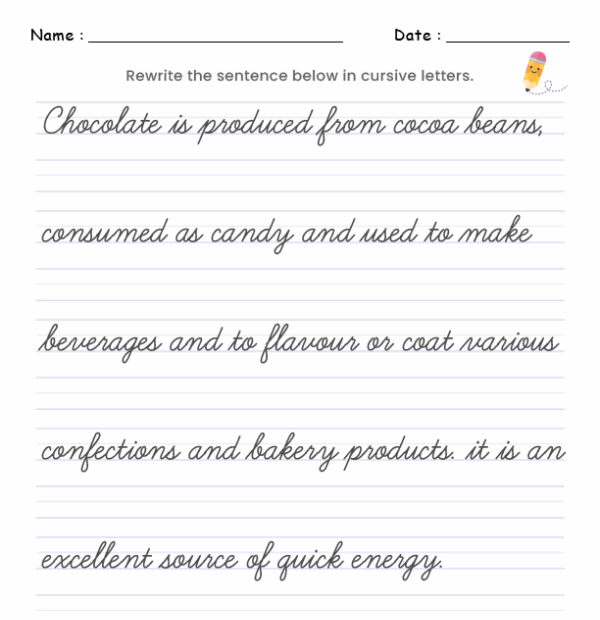 Name : Date :
Rewrite the sentence below in cursive letters.
Chocolate is produced from cocoa beans,
consumed as candy and used to make
beverages and to flavour or coat various
confections and bakery products. it is an
excellent source of quick energy.